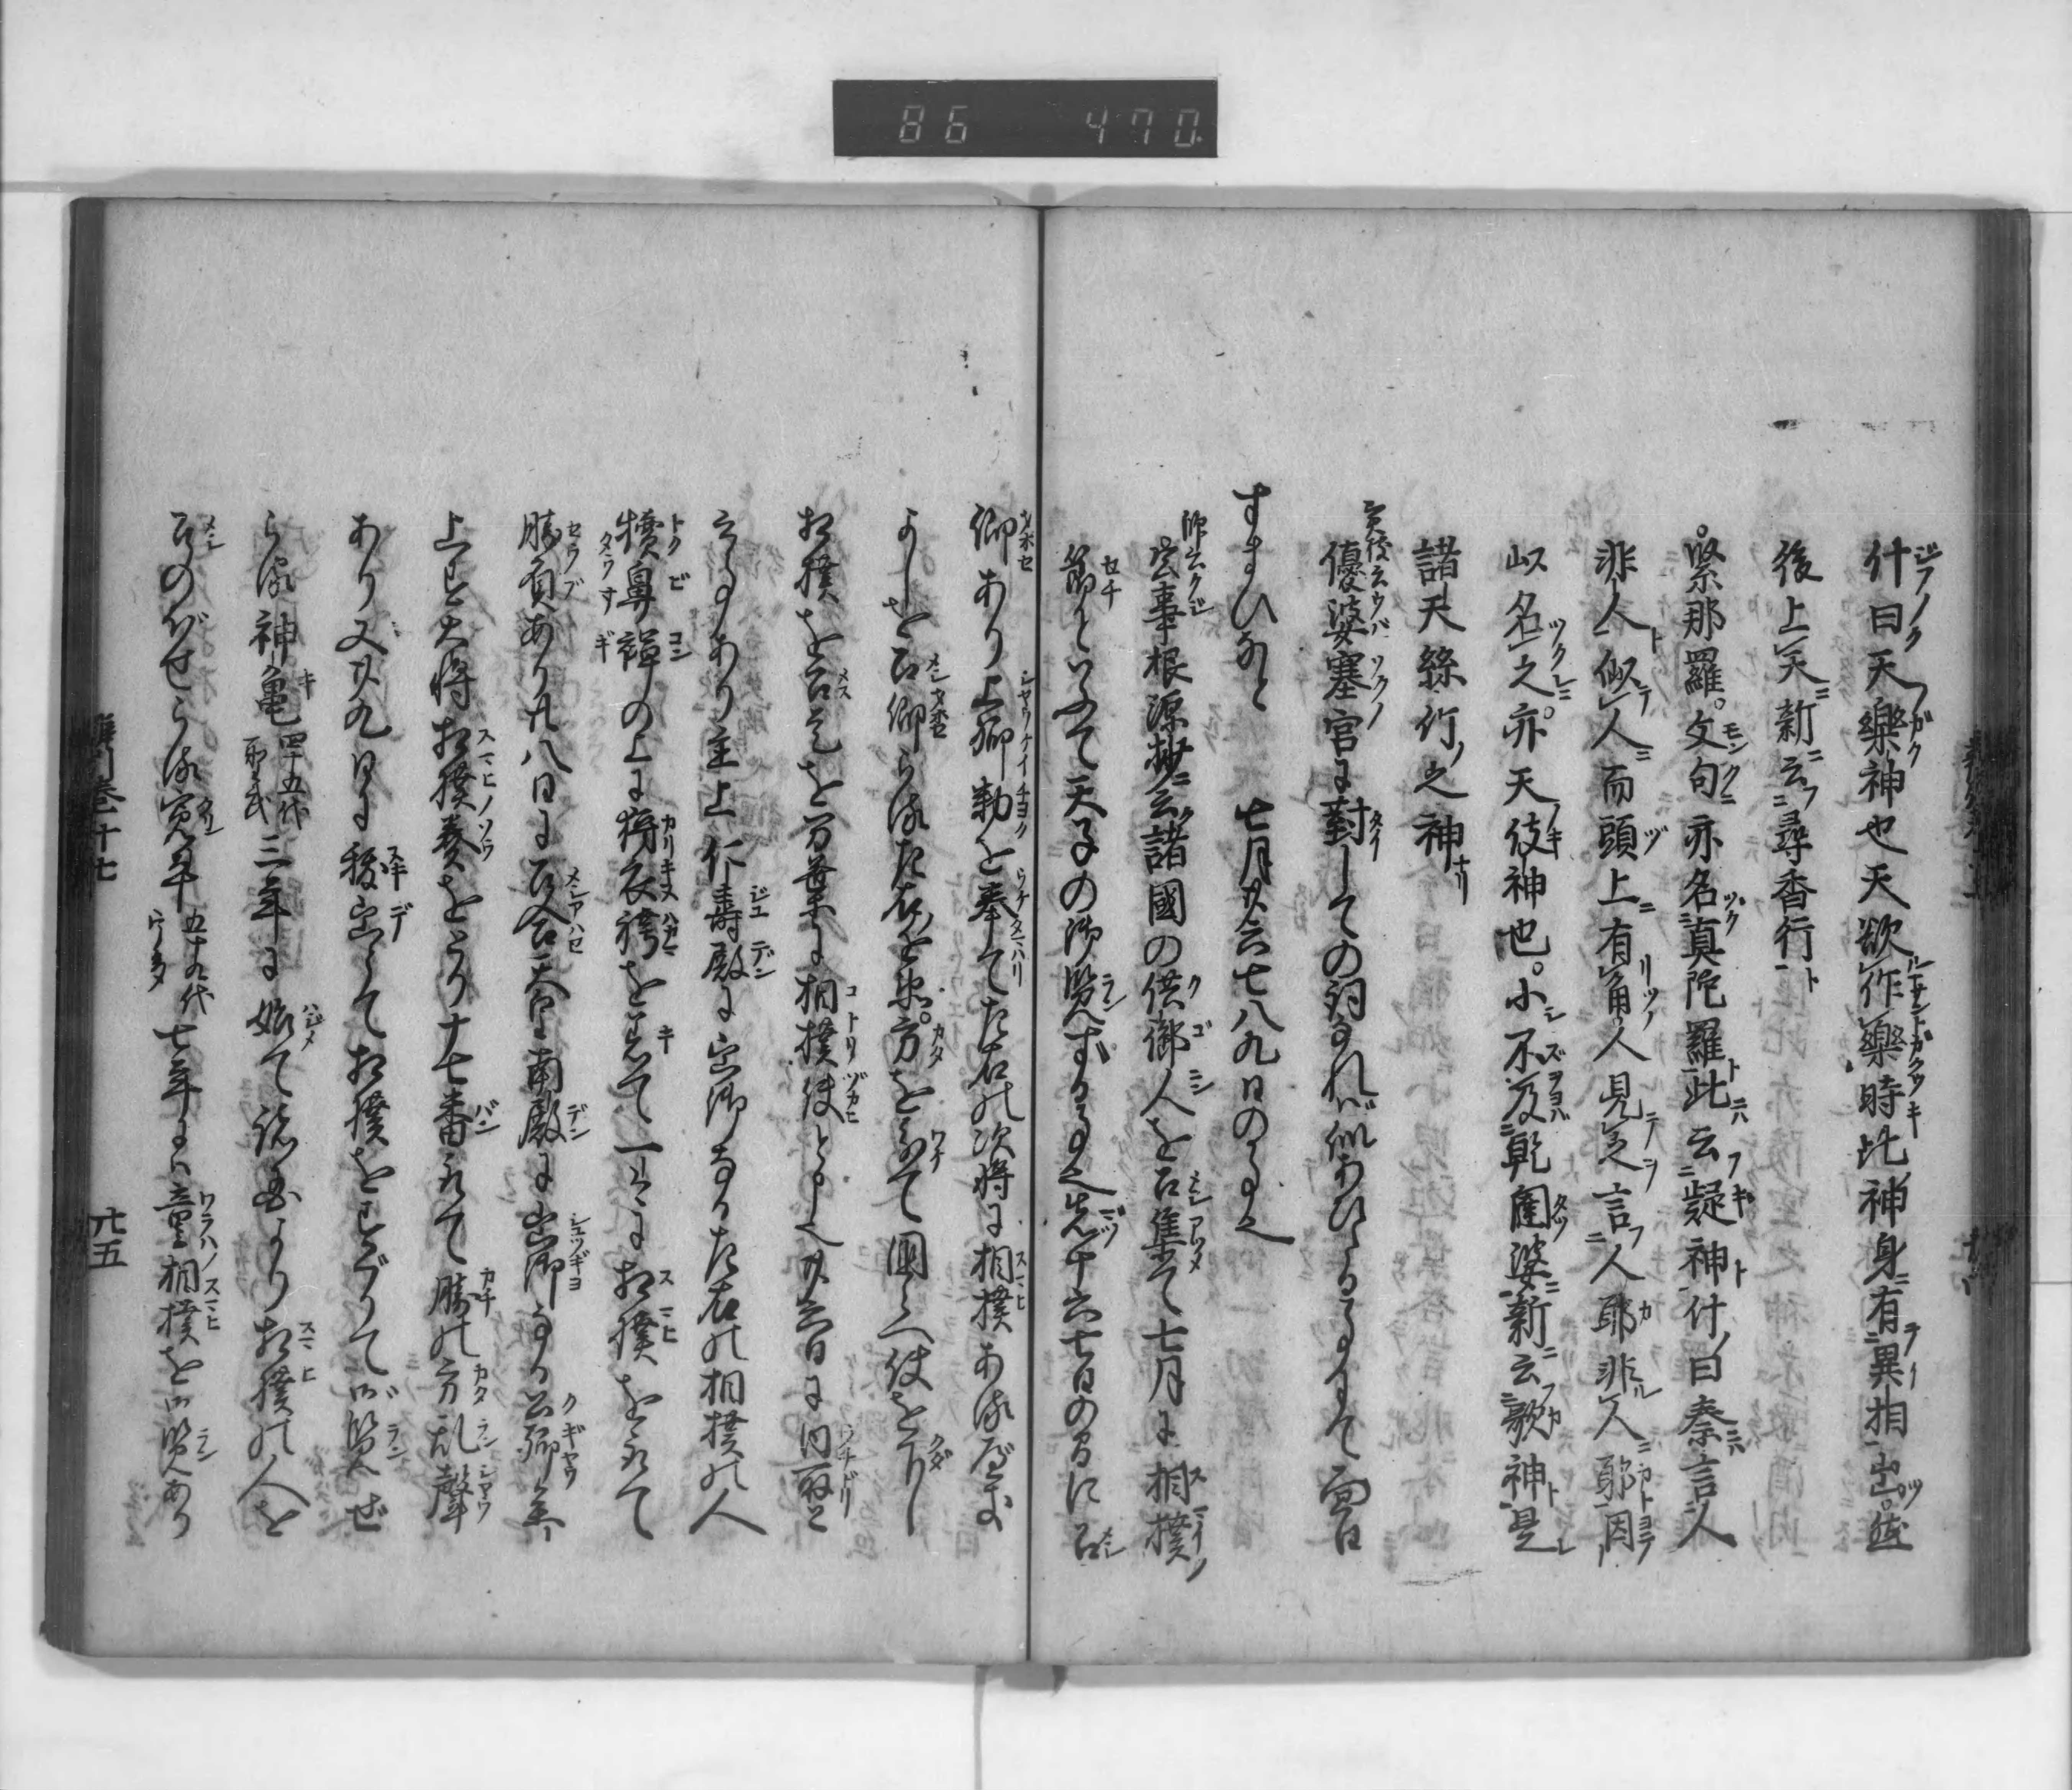 86 470
什曰天樂神也天欲作樂時此神身有異相出然
後上天新云尋香行
緊那羅。文句亦名真陀羅此云疑神什曰秦言人
非人似人而頭上有角人見之言人耶非人耶因
以名之。亦天伎神也。小不及乾闥婆新云歌神是
諸天絲竹之神
優婆塞宮に對しての詞なれば似あひたる事にて面白
すまひなと 七月廿六七八九日のこと也
公事根源抄云諸國の供御人を召集て七月に相撲
節といふて天子の御覧ずる事也先十六七日の間に召
仰あり上卿勅を奉て左右の次將に相撲あるべき
よしを召仰らる左右を
相撲を召是を万葉に相撲使とよし也廿六日に内取と
云事あり主上仁壽殿に出御なる左右の相撲の人
犢鼻褌の上に狩衣袴を着て一々に相撲を取て
勝負あり廿八日に召合天皇南殿に出御なる公卿参
上して大將相撲奏をとり十七番取て勝の方乱聲
あり又廿九日に抜出とて相撲をすぐりて御覧ぜ
らる神亀 四十五代 聖武 三年に始て諸国より相撲の人を
召のぼせらる寛平 五十九代 宇多 七年に童相撲を御覧あり
巻十七 廿五